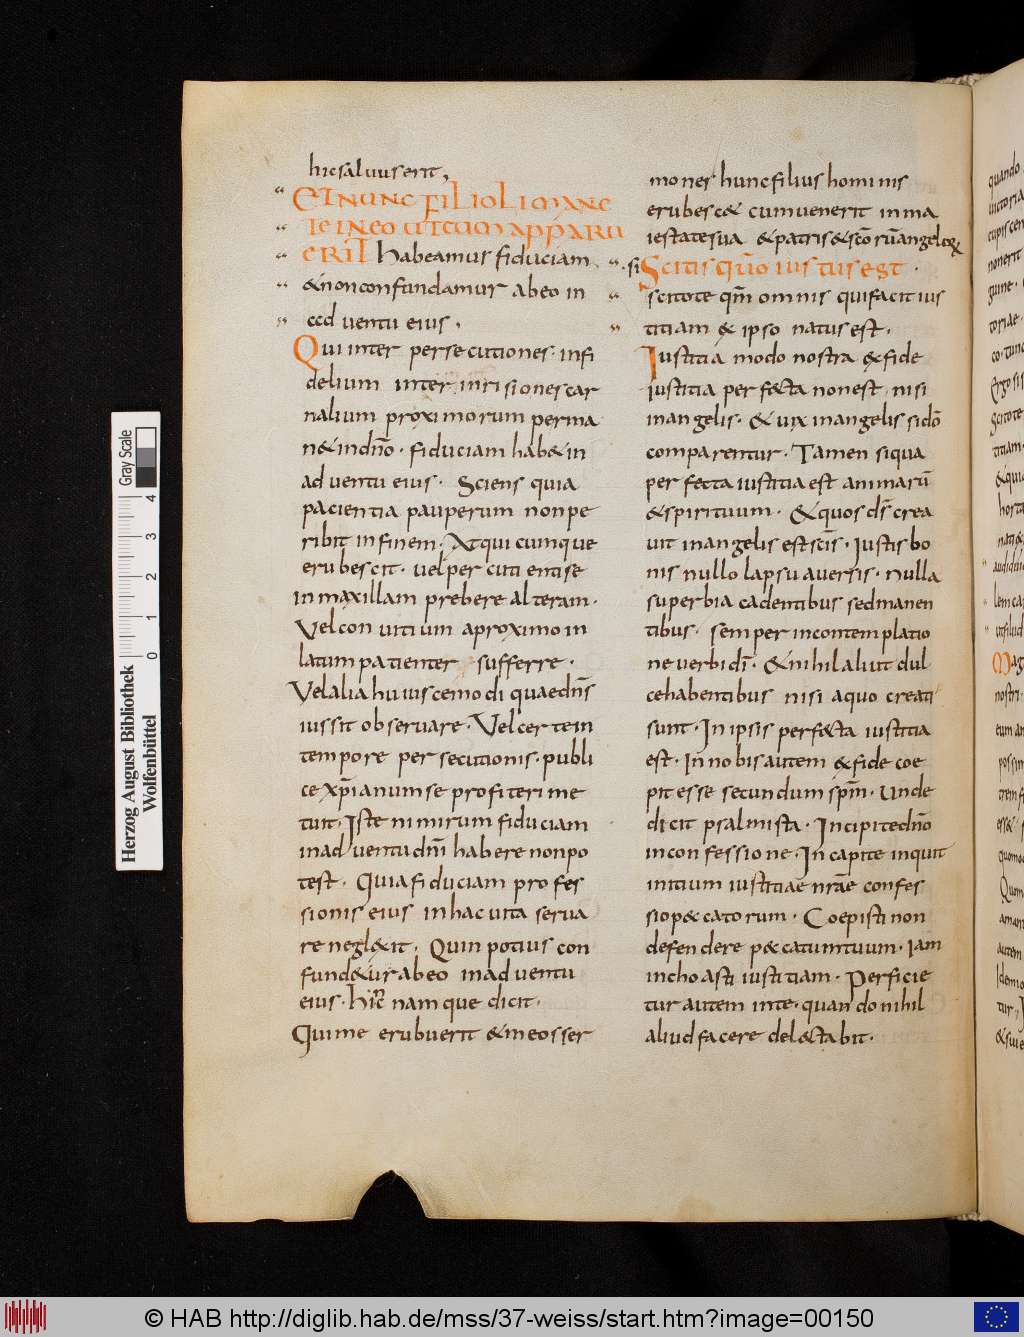 hic saluus erit,
Et nunc filioli mane
te in eo ut cum apparu
erit habeamus fiduciam
& non confundamur ab eo in
aduentu eius.
Qui inter persecutiones. infi
delium inter inrisiones car
nalium proximorum perma
n& indn̄o. fiduciam hab& in
aduentu eius. Sciens quia
pacientia pauperum non pe
ribit infinem. Atquicumque
erubescit. uel percutientise
in maxillam prebere alteram.
Vel conuitium aproximo in
latum patienter sufferre.
Vel alia huiuscemodi quae dn̄s
iussit obseruare. Vel certe in
tempore persecutionis. publi
ce xp̄ianum se profiteri me
tuit. Iste nimirum fiduciam
in aduentu dn̄i habere non po
test. Quia fiduciam profes
sionis eius in hac uita serua
re negl&it. Quin potius con
fund&ur abeo inaduentu
eius. Hinc namque dicit.
Qui me erubuerit & meos ser
mones hunc filius hominis
erubesc& cum uenerit in ma
iestate sua & patris & sc̄orū angelorꝝ
si Scitis quō iustus est.
scitote qm̄ omnis qui facit ius
titiam & ipso natus est.
Iustitia modo nostra & fide
iustitia perf&ta non est, nisi
in angelis. & uix in angelis si dō
comparentur. Tamen siqua
perfecta iustitia est animarū
& spirituum. & quos ds̄ crea
uit in angelis est sc̄is. Iustis bo
nis nullo lapsu auersis. nulla
superbia cadentibus sed manen
tibus. semper in contemplatio
ne uerbi dī. & nihil aliut dul
ce habentibus nisi a quo creati
sunt. In ipsis perf&ta iustitia
est. In nobis autem & fide coe
pit esse secundum spm̄. unde
dicit psalmista. Incipite dn̄o
in confessione. In capite inquit
initium iustitiae nrāe confes
sio p&catorum. Coepisti non
defendere p&catum tuum. iam
inchoasti iustitiam. Perficie
tur autem in te. quando nihil
aliud facere del&tabit.
quando
uictoria
cupiscen
nonerit
guine.
toriae.
co. tunc
Ergo sis
Scitote
titiam
& quia
Mag
nostri
eum am
possim
autem
Gray Scale
4
3
2
1
0
Herzog August Bibliothek
Wolfenbüttel
© HAB http://diglib.hab.de/mss/37-weiss/start.htm?image=00150